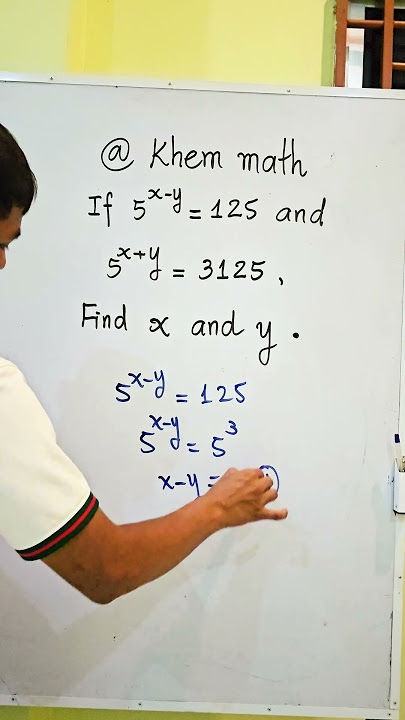 @ Khem math
If 5^{x-y} = 125 and
5^{x+y} = 3125,
Find x and y.
5^{x-y} = 125
5^{x-y} = 5^3
x-y =